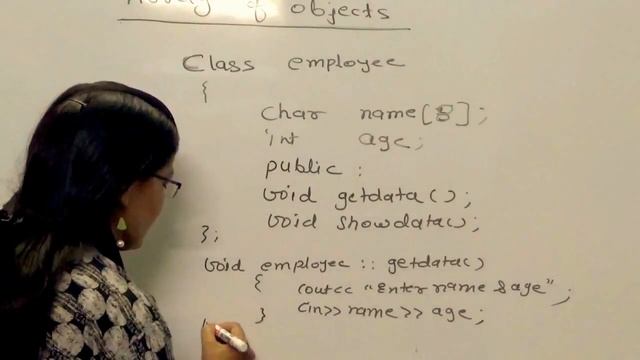 Array of objects
Class employee
{
char name[8];
int age;
public :
void getdata();
void showdata();
};
void employee :: getdata()
{ cout<< "Enter name & age";
} cin>>name>>age;